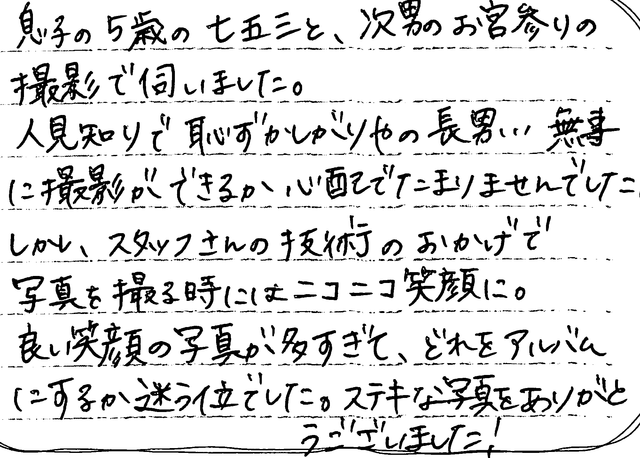 息子の5歳の七五三と、次男のお宮参りの
撮影で伺いました。
人見知りで恥ずかしがりやの長男… 無事
に撮影ができるか心配でたまりませんでした。
しかし、スタッフさんの技術のおかげで
写真を撮る時にはニコニコ笑顔に。
良い笑顔の写真が多すぎて、どれをアルバム
にするか迷う位でした。ステキな写真をありがと
うございました！